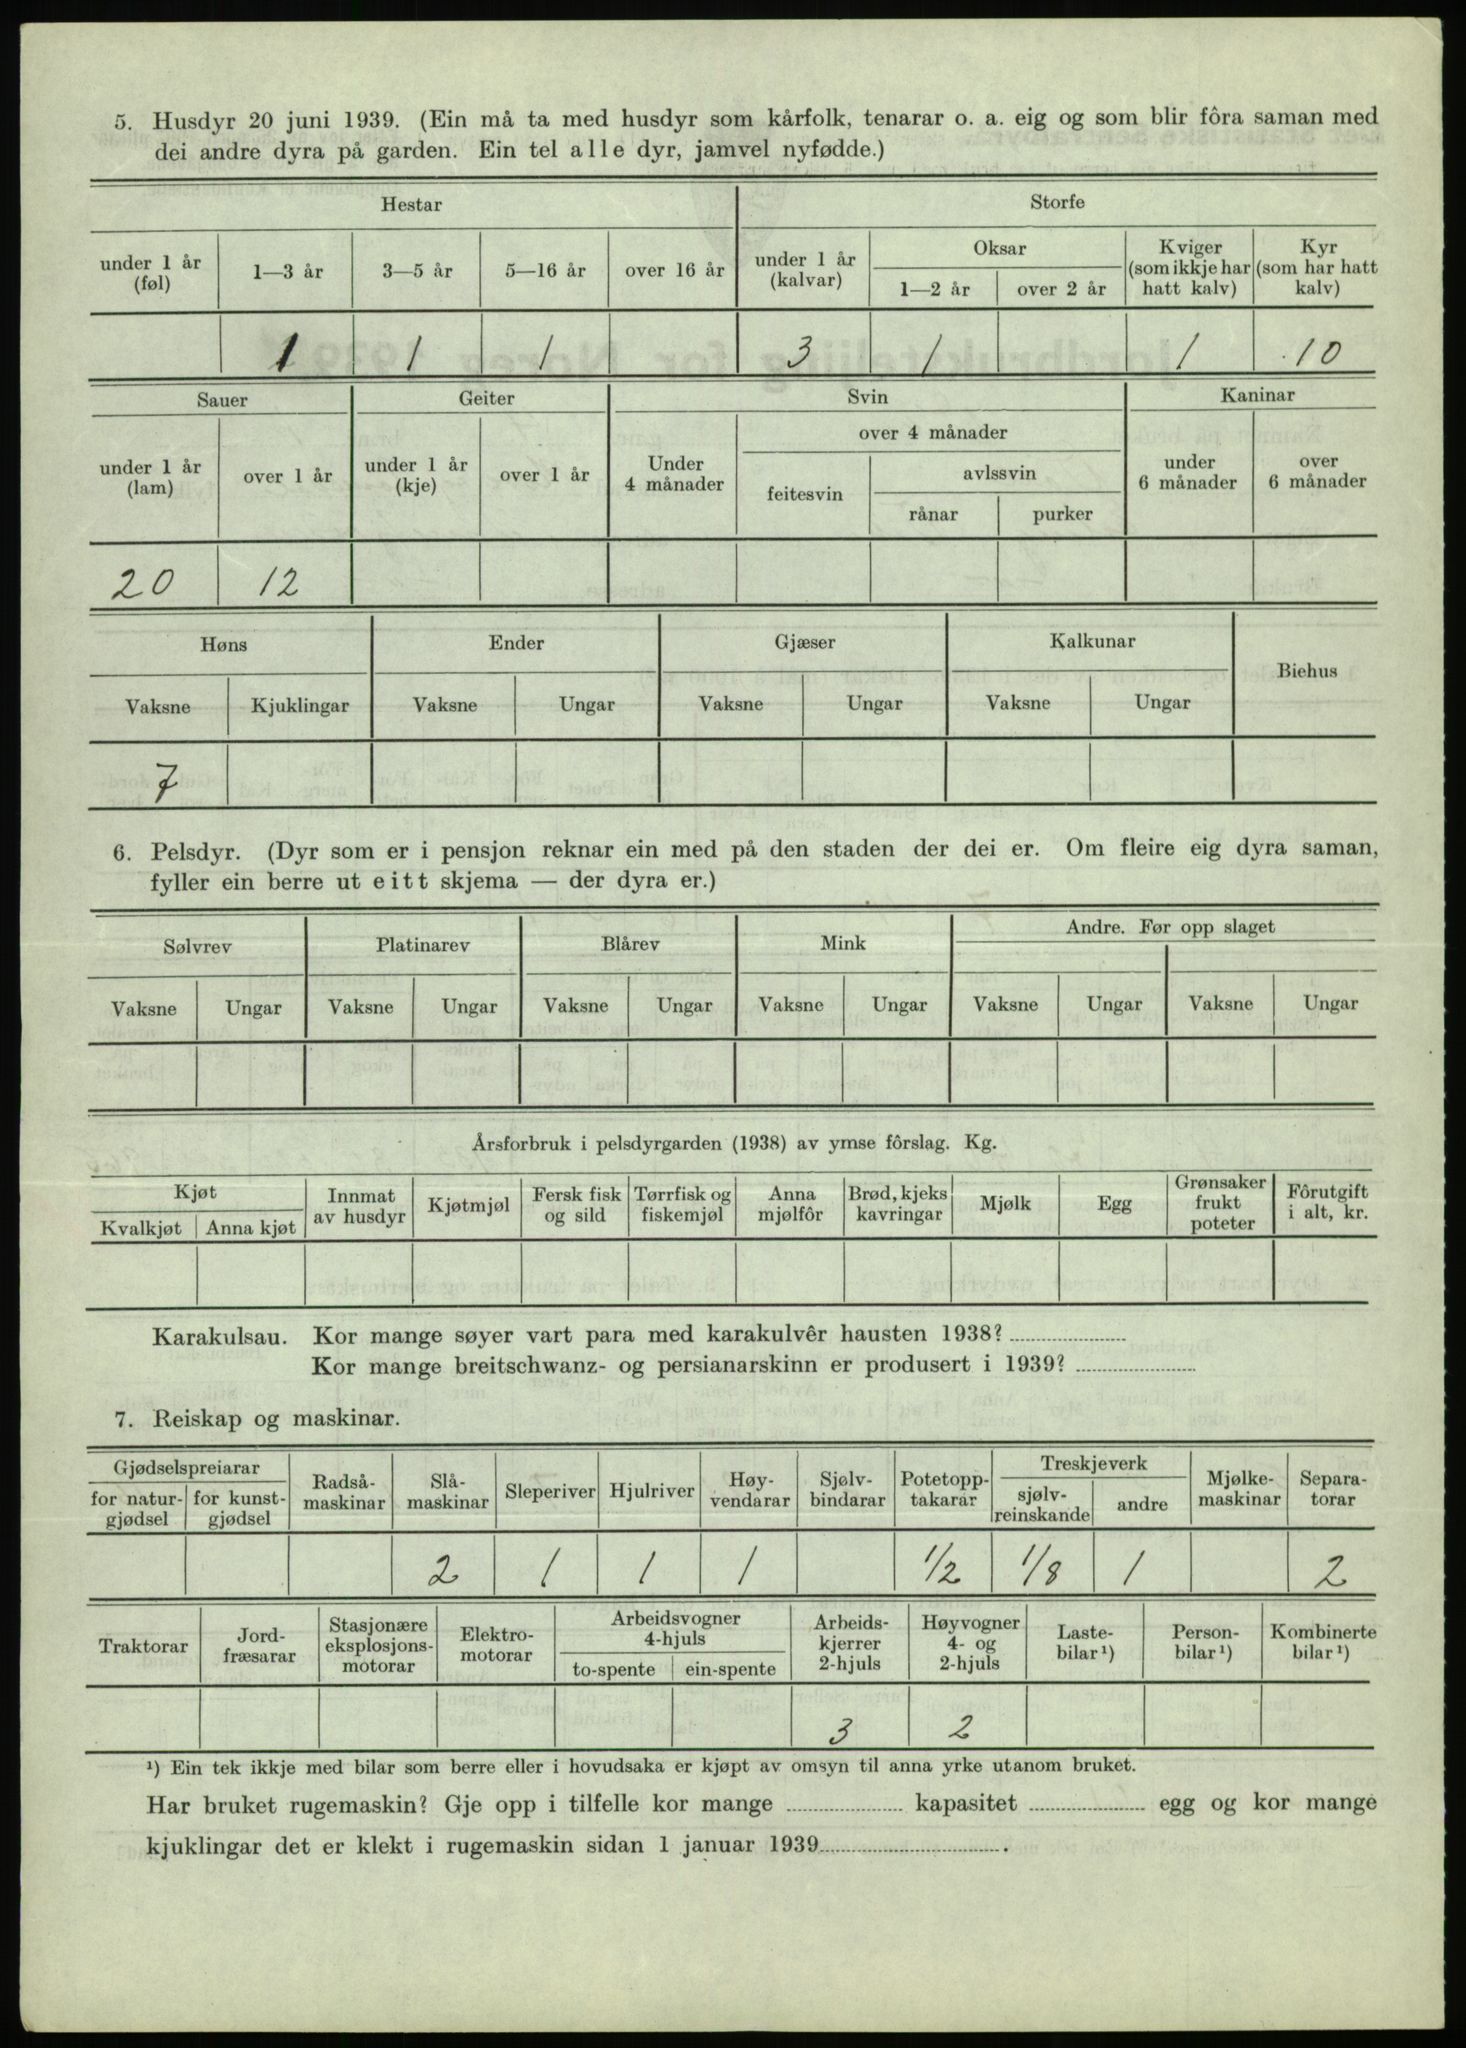 5. Husdyr 20 juni 1939. (Ein må ta med husdyr som kårfolk, tenarar o. a. eig og som blir fôra saman med
dei andre dyra på garden. Ein tel alle dyr, jamvel nyfødde.)
Hestar Storfe
under 1 år (føl) 1—3 år 3—5 år 5—16 år over 16 år under 1 år (kalvar) Oksar 1—2 år over 2 år Kviger (som ikkje har hatt kalv) Kyr (som har hatt kalv)
1 1 1 3 1 1 10
Sauer Geiter Svin Kaninar
under 1 år (lam) over 1 år under 1 år (kje) over 1 år Under 4 månader over 4 månader feitesvin avlssvin rånar purker under 6 månader over 6 månader
20 12
Høns Ender Gjæser Kalkunar Biehus
Vaksne Kjuklingar Vaksne Ungar Vaksne Ungar Vaksne Ungar
7
6. Pelsdyr. (Dyr som er i pensjon reknar ein med på den staden der dei er. Om fleire eig dyra saman,
fyller ein berre ut eitt skjema — der dyra er.)
Sølvrev Platinarev Blårev Mink Andre. Før opp slaget
Vaksne Ungar Vaksne Ungar Vaksne Ungar Vaksne Ungar Vaksne Ungar Vaksne Ungar
Årsforbruk i pelsdyrgarden (1938) av ymse fôrslag. Kg.
Kjøt Kvalkjøt Anna kjøt Innmat av husdyr Kjøtmjøl Fersk fisk og sild Tørrfisk og fiskemjøl Anna mjølfôr Brød, kjeks kavringar Mjølk Egg Grønsaker frukt poteter Fôrutgift i alt, kr.
Karakulsau. Kor mange søyer vart para med karakulvêr hausten 1938?
Kor mange breitschwanz- og persianarskinn er produsert i 1939?
7. Reiskap og maskinar.
Gjødselspreiarar for natur-gjødsel for kunst-gjødsel Radså-maskinar Slå-maskinar Sleperiver Hjulriver Høy-vendarar Sjølv-bindarar Potetopp-takarar Treskjeverk sjølv-reinskande andre Mjølke-maskinar Separa-torar
2 1 1 1 1/2 1/8 1 2
Traktorar Jord-fræsarar Stasjonære eksplosjons-motorar Elektro-motorar Arbeidsvogner 4-hjuls to-spente ein-spente Arbeids-kjerrer 2-hjuls Høyvogner 4- og 2-hjuls Laste-bilar¹) Person-bilar¹) Kombinerte bilar¹)
3 2
¹) Ein tek ikkje med bilar som berre eller i hovudsaka er kjøpt av omsyn til anna yrke utanom bruket.
Har bruket rugemaskin? Gje opp i tilfelle kor mange kapasitet egg og kor mange
kjuklingar det er klekt i rugemaskin sidan 1 januar 1939 .